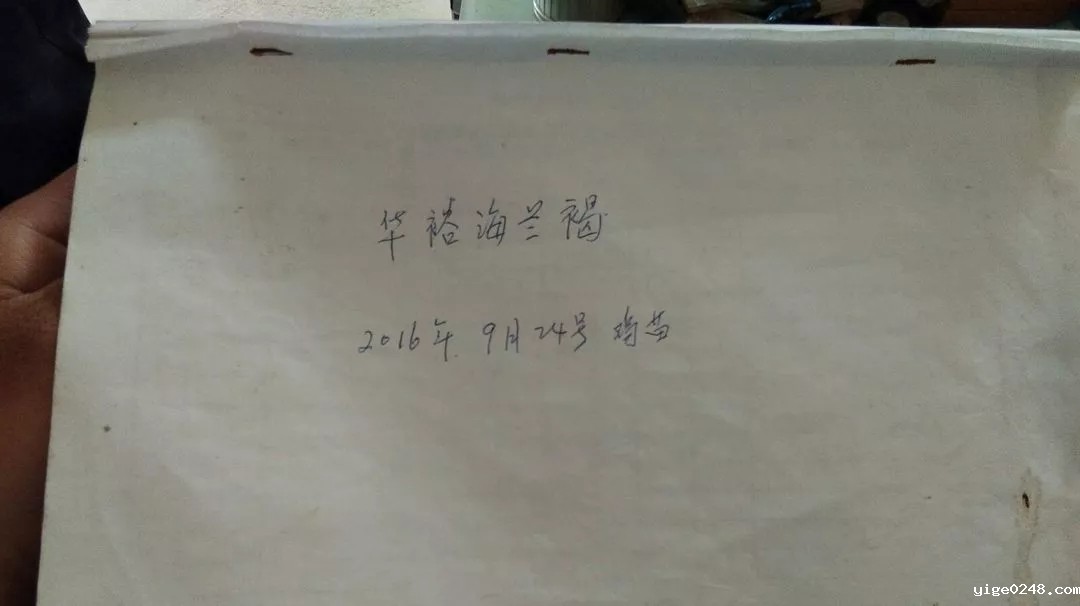 华裕海兰褐
2016年.9月24号 鸡苗
yige0248.com